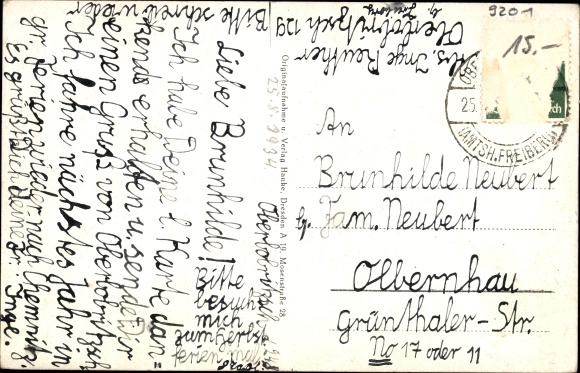 Abs. Inge Reuther
Oberbobritzsch 129
b. Freiberg
Bitte schreib wieder
Liebe Brunhilde!
Ich habe Deine l. Karte dan=
kend erhalten u. sende Dir
einen Gruß von Oberbobritzsch.
Ich fahre nächstes Jahr in
gr. Ferien wieder nach Chemnitz.
Es grüßt Dich Deine Fr. Inge.
Bitte
besuch
mich
zum Herbst
ferien mal
Originalaufnahme u. Verlag Hanke, Dresden A 19, Mosenstraße 28
9201
15.-
25.
(AMTSH. FREIBERG)
An
Brunhilde Neubert
b. Fam. Neubert
Olbernhau
Grünthaler-Str.
No 17 oder 11